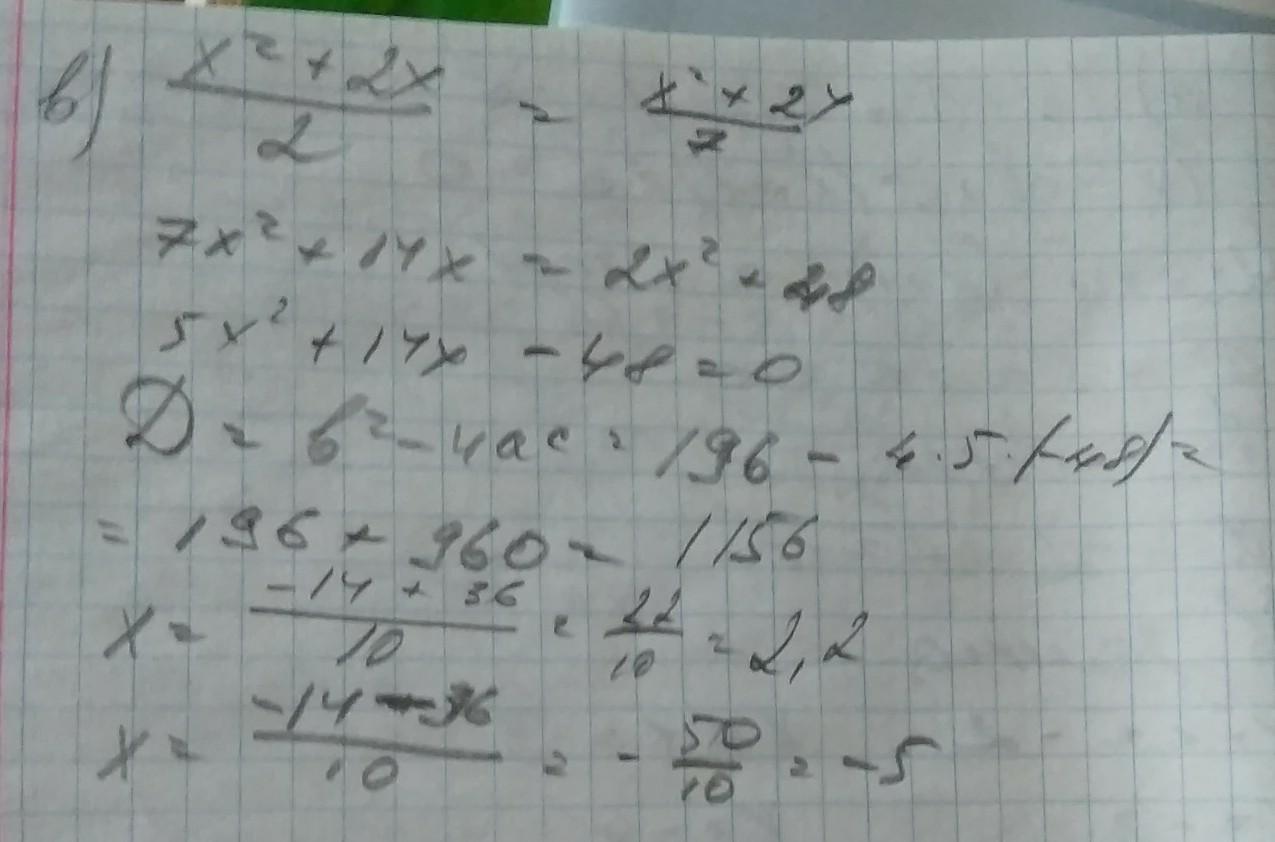 в) (x² + 2x)/2 = (x² + 24)/7
7x² + 14x = 2x² + 48
5x² + 14x - 48 = 0
D = b² - 4ac = 196 - 4·5·(-48) =
= 196 + 960 = 1156
x = (-14 + 36)/10 = 22/10 = 2,2
x = (-14 - 36)/10 = - 50/10 = -5